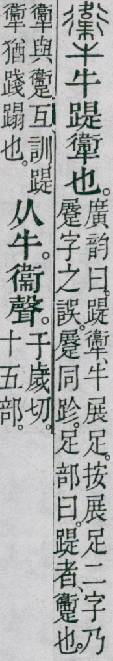 㹑牛踶㹑也。
廣韵曰。踶㹑、牛展足。按展足二字乃
字之誤。同跈。足部曰。踶者、躛也。
㹑與躛互訓。踶
㹑猶踐蹋也。
从牛。衞聲。
于歲切。
十五部。